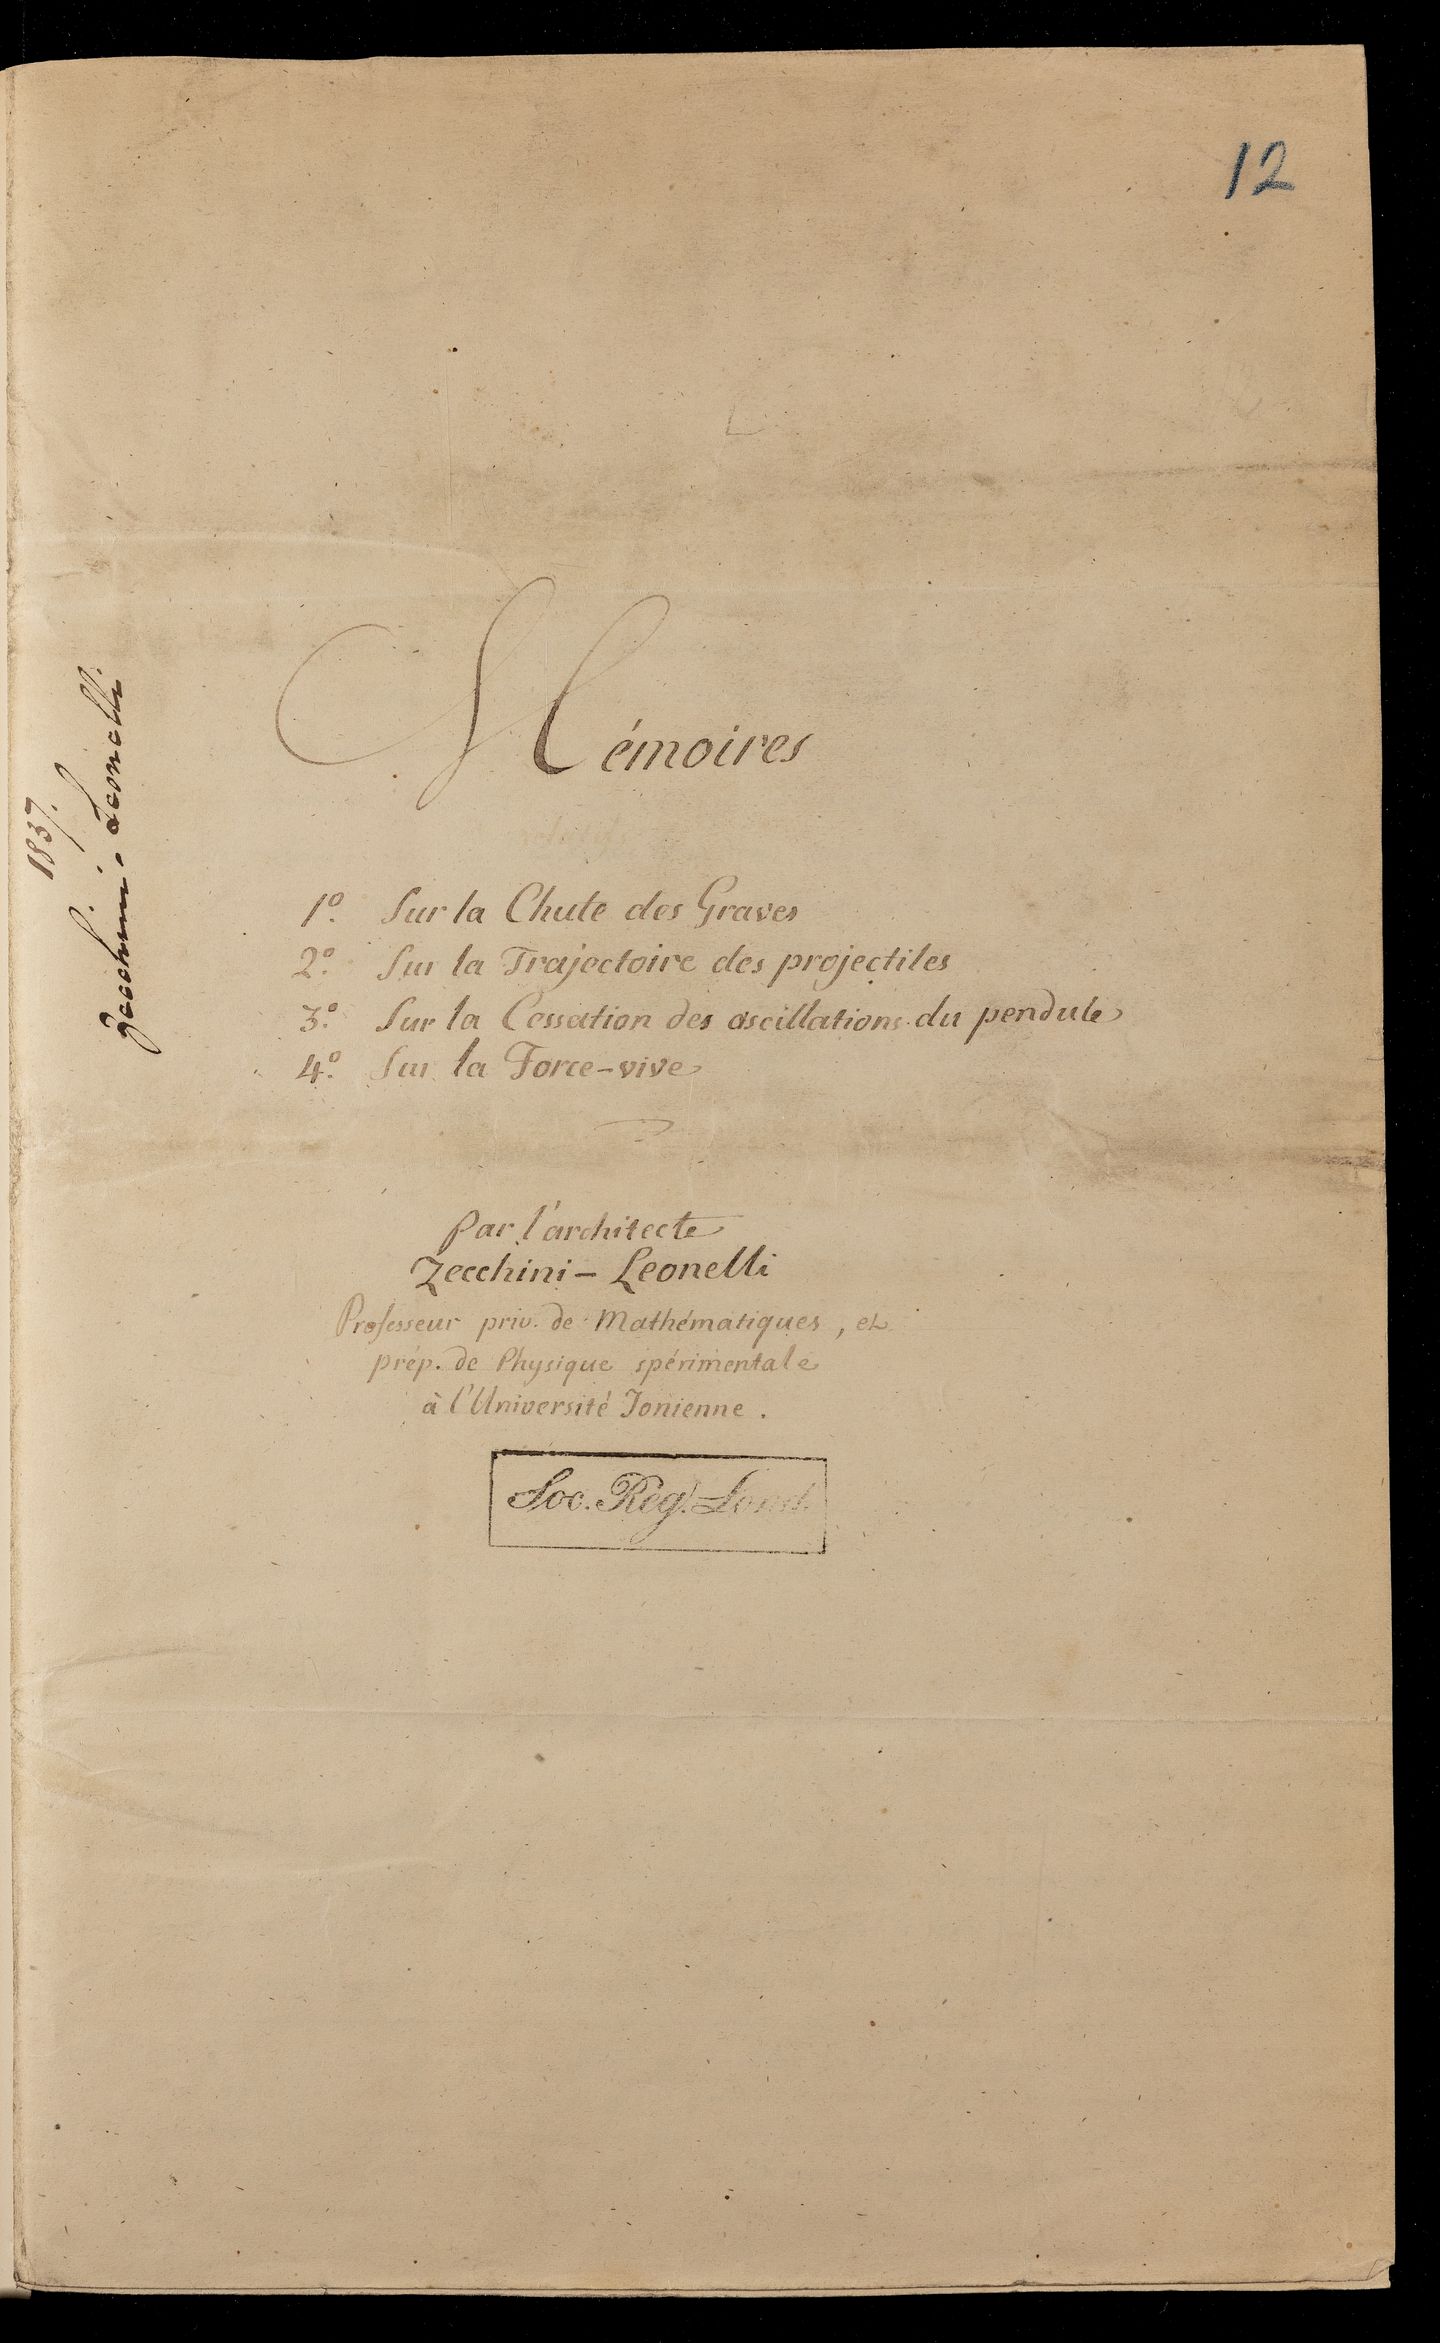 12
1837.
Zecchini-Leonelli
Mémoires
1º. Sur la Chute des Graves
2º. Sur la Trajectoire des projectiles
3º. Sur la Cessation des oscillations du pendule
4º. Sur la Force-vive
Par l'architecte
Zecchini-Leonelli
Professeur priv. de Mathématiques, et
prép. de Physique spérimentale
à l'Université Jonienne.
Soc. Reg. Lond.